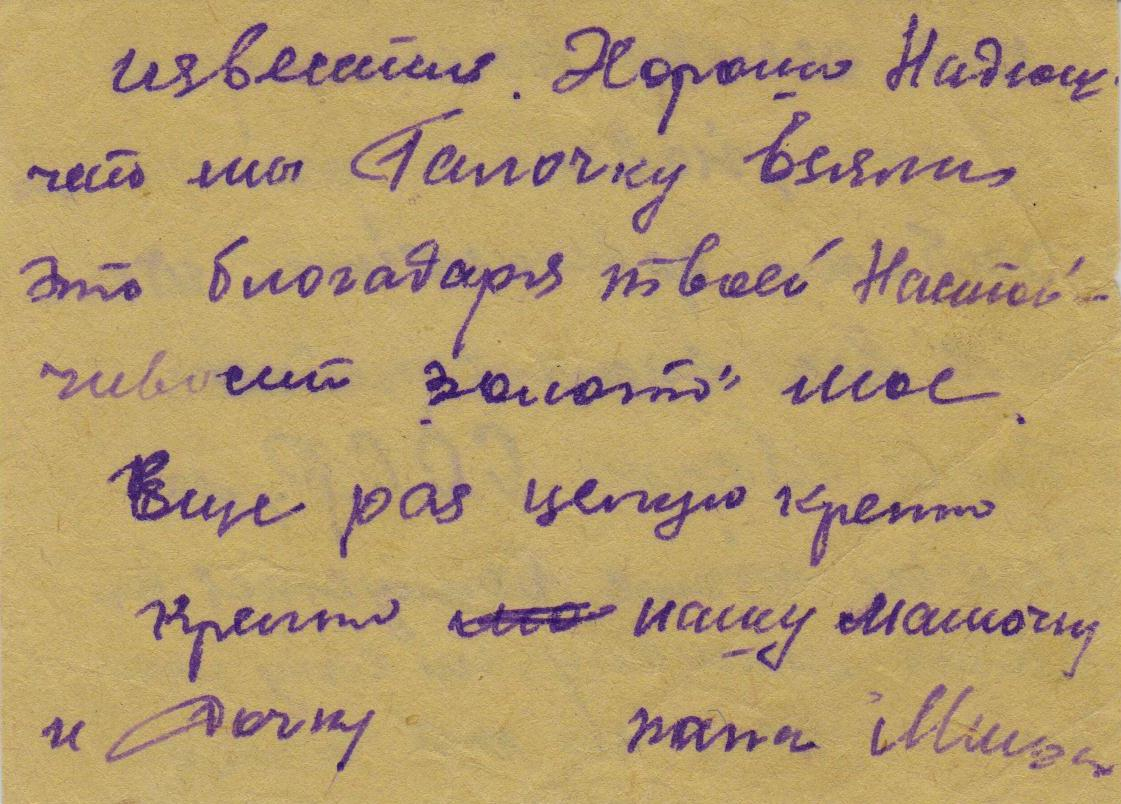 известия. Хорошо Надюш.
что мы Галочку взяли
это благодаря твоей Настой-
чивости золото" мое.
Еще раз целую крепко
крепко нашу мамочку
и Дочку папа Миша